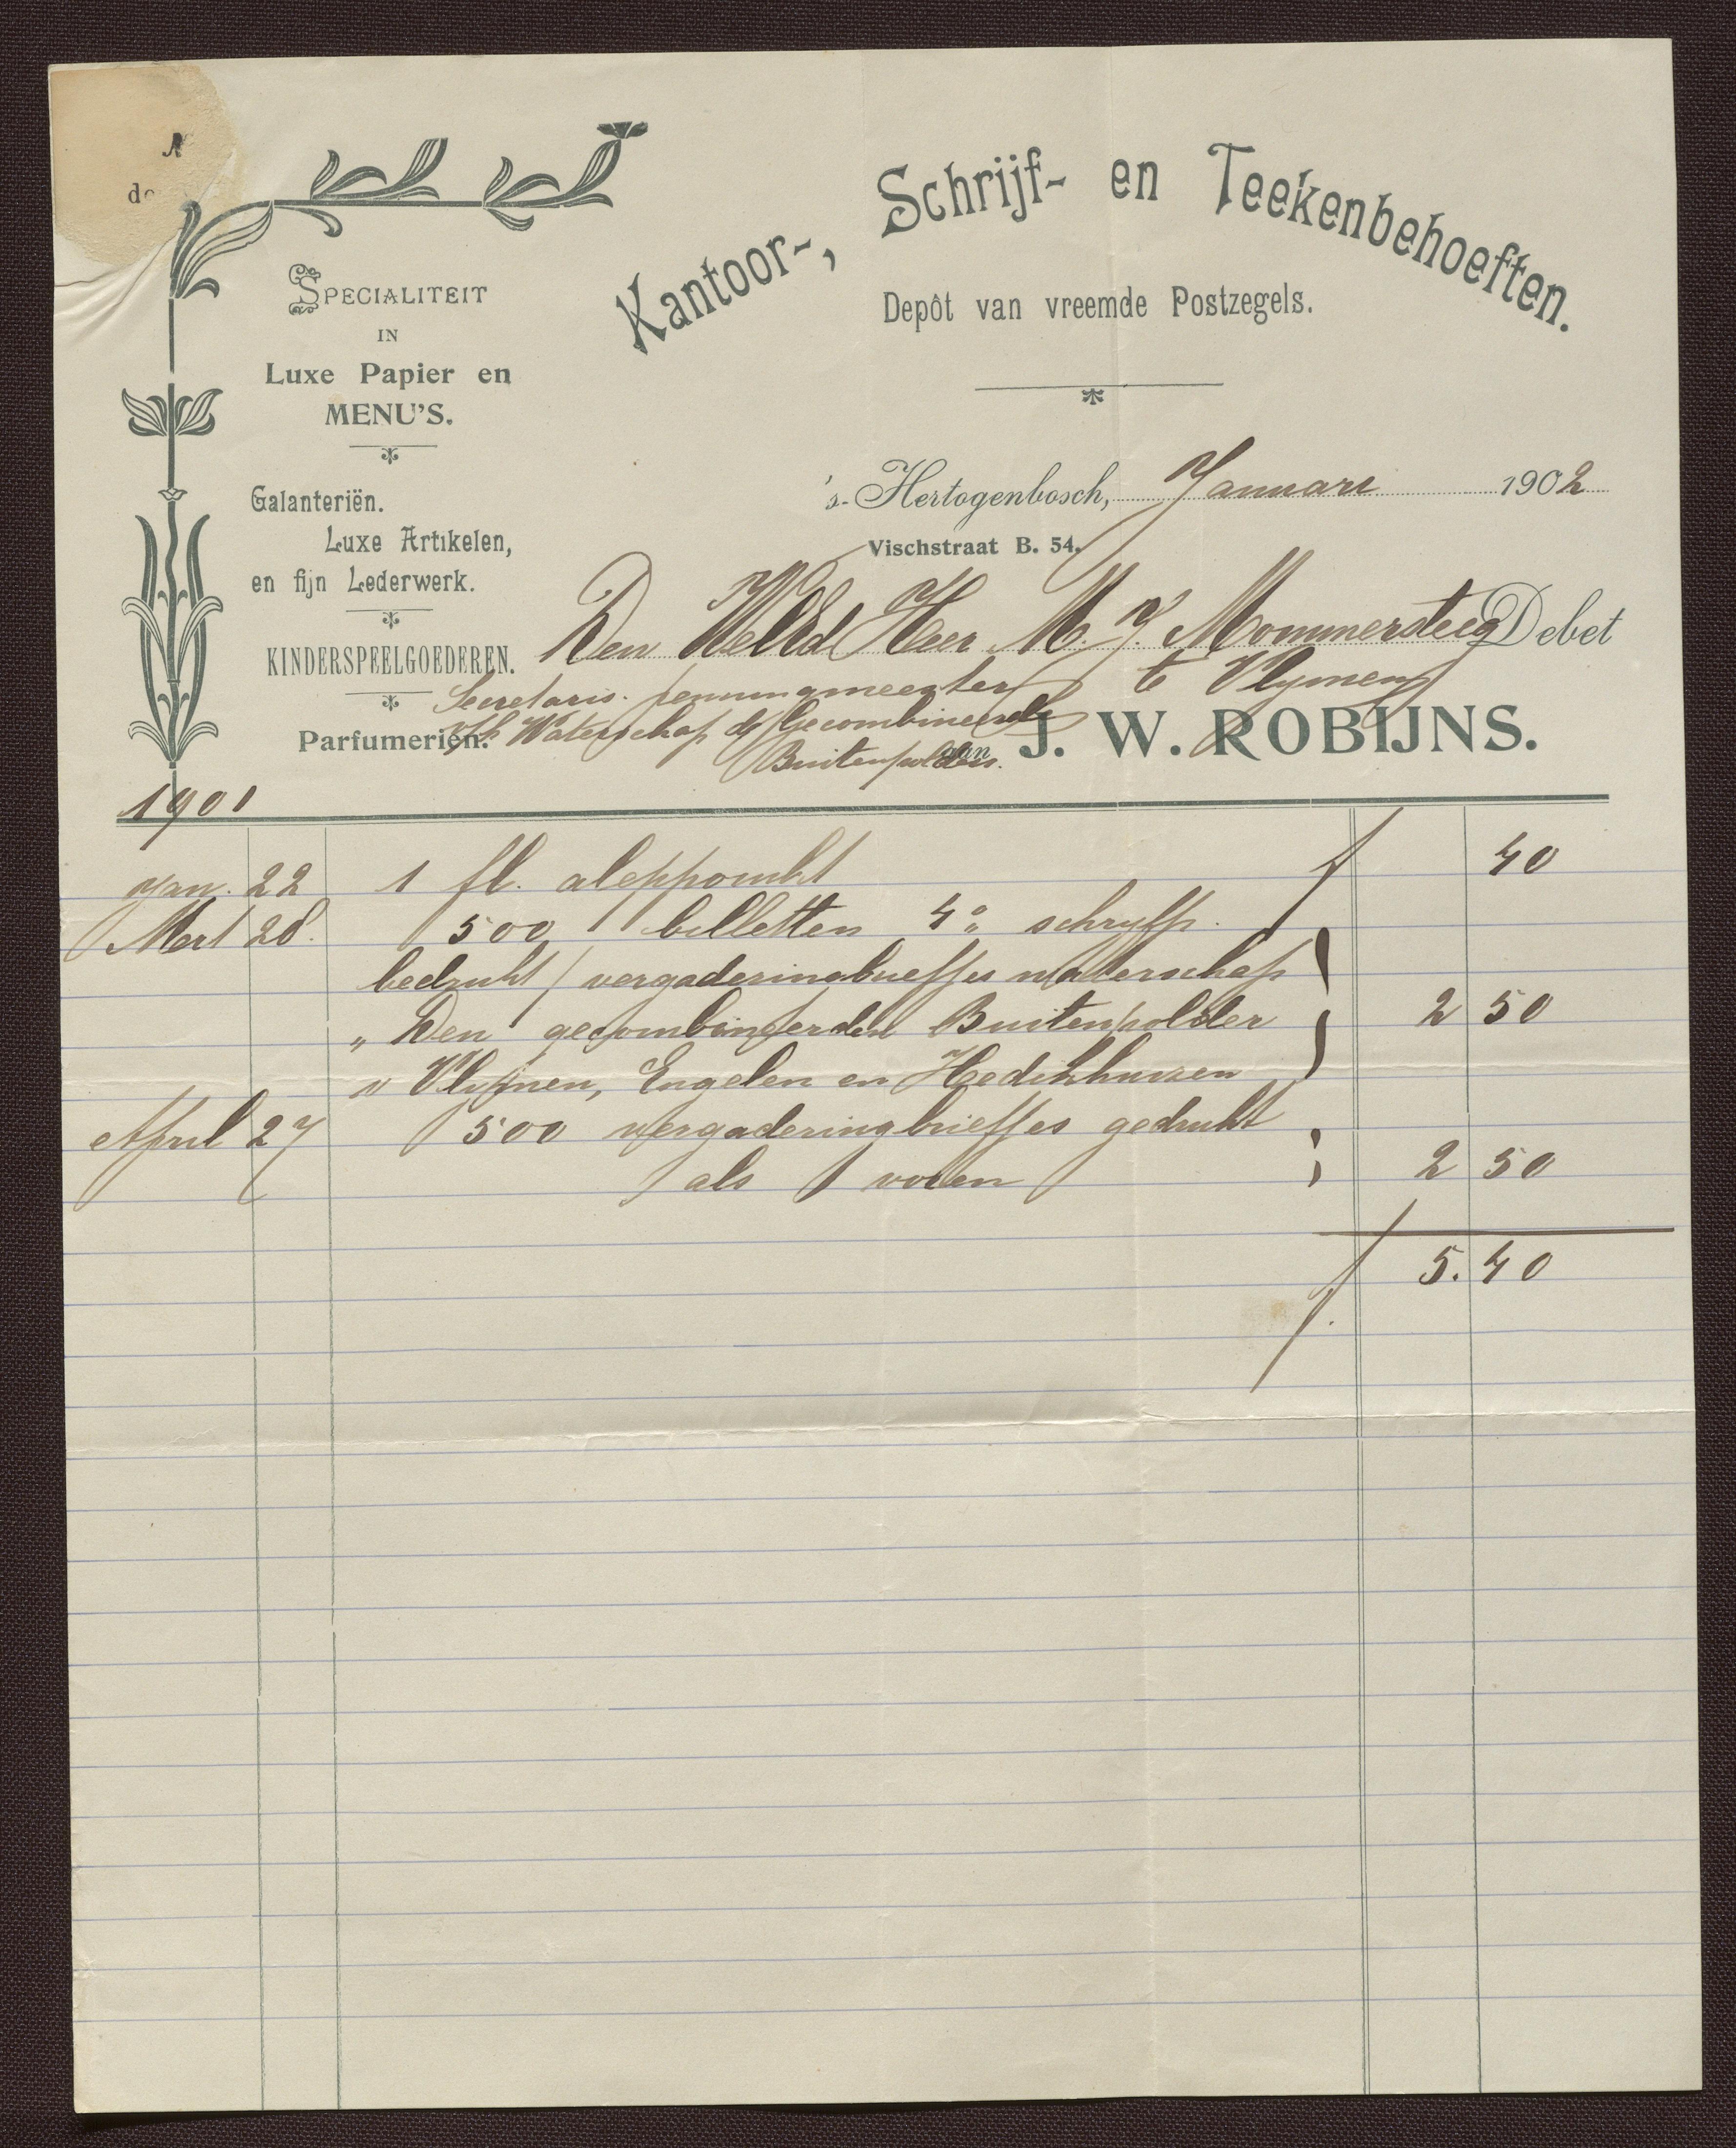 Kantoor-, Schrijf- en Teekenbehoeften.
Depôt van vreemde Postzegels.
SPECIALITEIT
IN
Luxe Papier en
MENU'S.
Galanteriën.
Luxe Artikelen,
en fijn Lederwerk.
KINDERSPEELGOEDEREN.
Parfumeriën.
's-Hertogenbosch, Januari 1902
Vischstraat B. 54.
Den WelEd Heer M. J. Mommersteeg Debet
Secretaris. penningmeester te Vlymen
Waterschap de Gecombineerde
Buitenpolders.
aan J. W. ROBIJNS.
1901
Jan. 22 1 fl. aleppoinkt f 40
Mert 28. 500 billetten 4o schryfp.
bedrukt / vergaderingbriefjes waterschap
„ Den gecombineerden Buitenpolder 2 50
v Vlijmen, Engelen en Hedikhuizen
April 27 500 vergaderingbriefjes gedrukt
als voren 2 50
f 5.40